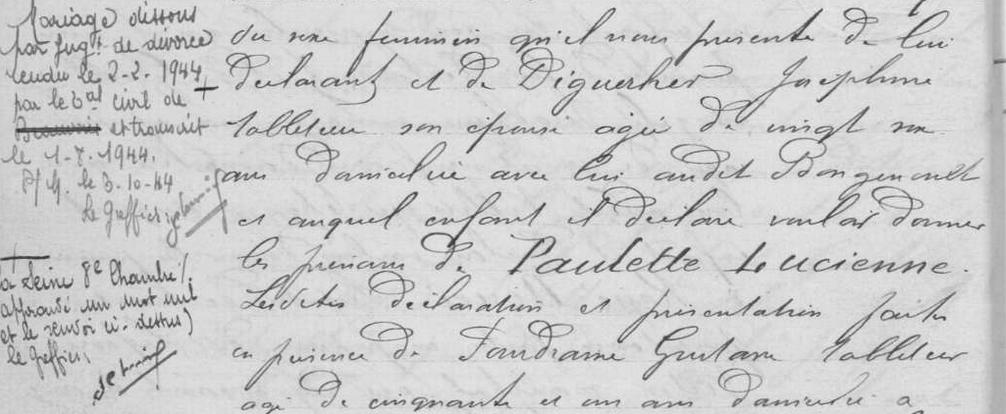 Mariage dissous
par jugt de divorce
rendu le 2-2-1944 +
par le bal civil de
et transcrit
le 1-7-1944.
P/M. le 3-10-44
Le Greffier
+
la Seine 8e Chambre /.
approuvé un mot nul
et le renvoi ci-dessus)
le Greffier,
du sexe féminin qu'il nous présente de lui
déclarant et de Diguerher Joséphine
tableteur son épouse agée de vingt six
ans domiciliée avec lui audit Bongenoult
et auquel enfant il déclare vouloir donner
les prénoms de Paulette Lucienne.
Lesdites déclaration et présentation faites
en présence de Foudrame Gustave tableteur
agé de cinquante et un ans domicilié à